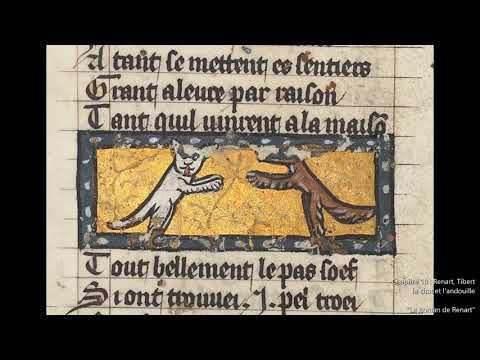 A tant se mettent es sentiers
Grant aleure par raison
Tant quil vinrent a la maisō
Tout bellement le pas soef
Si ont
Chapitre : Renart, Tibert
le chat et l'andouille
"Le Roman de Renart"